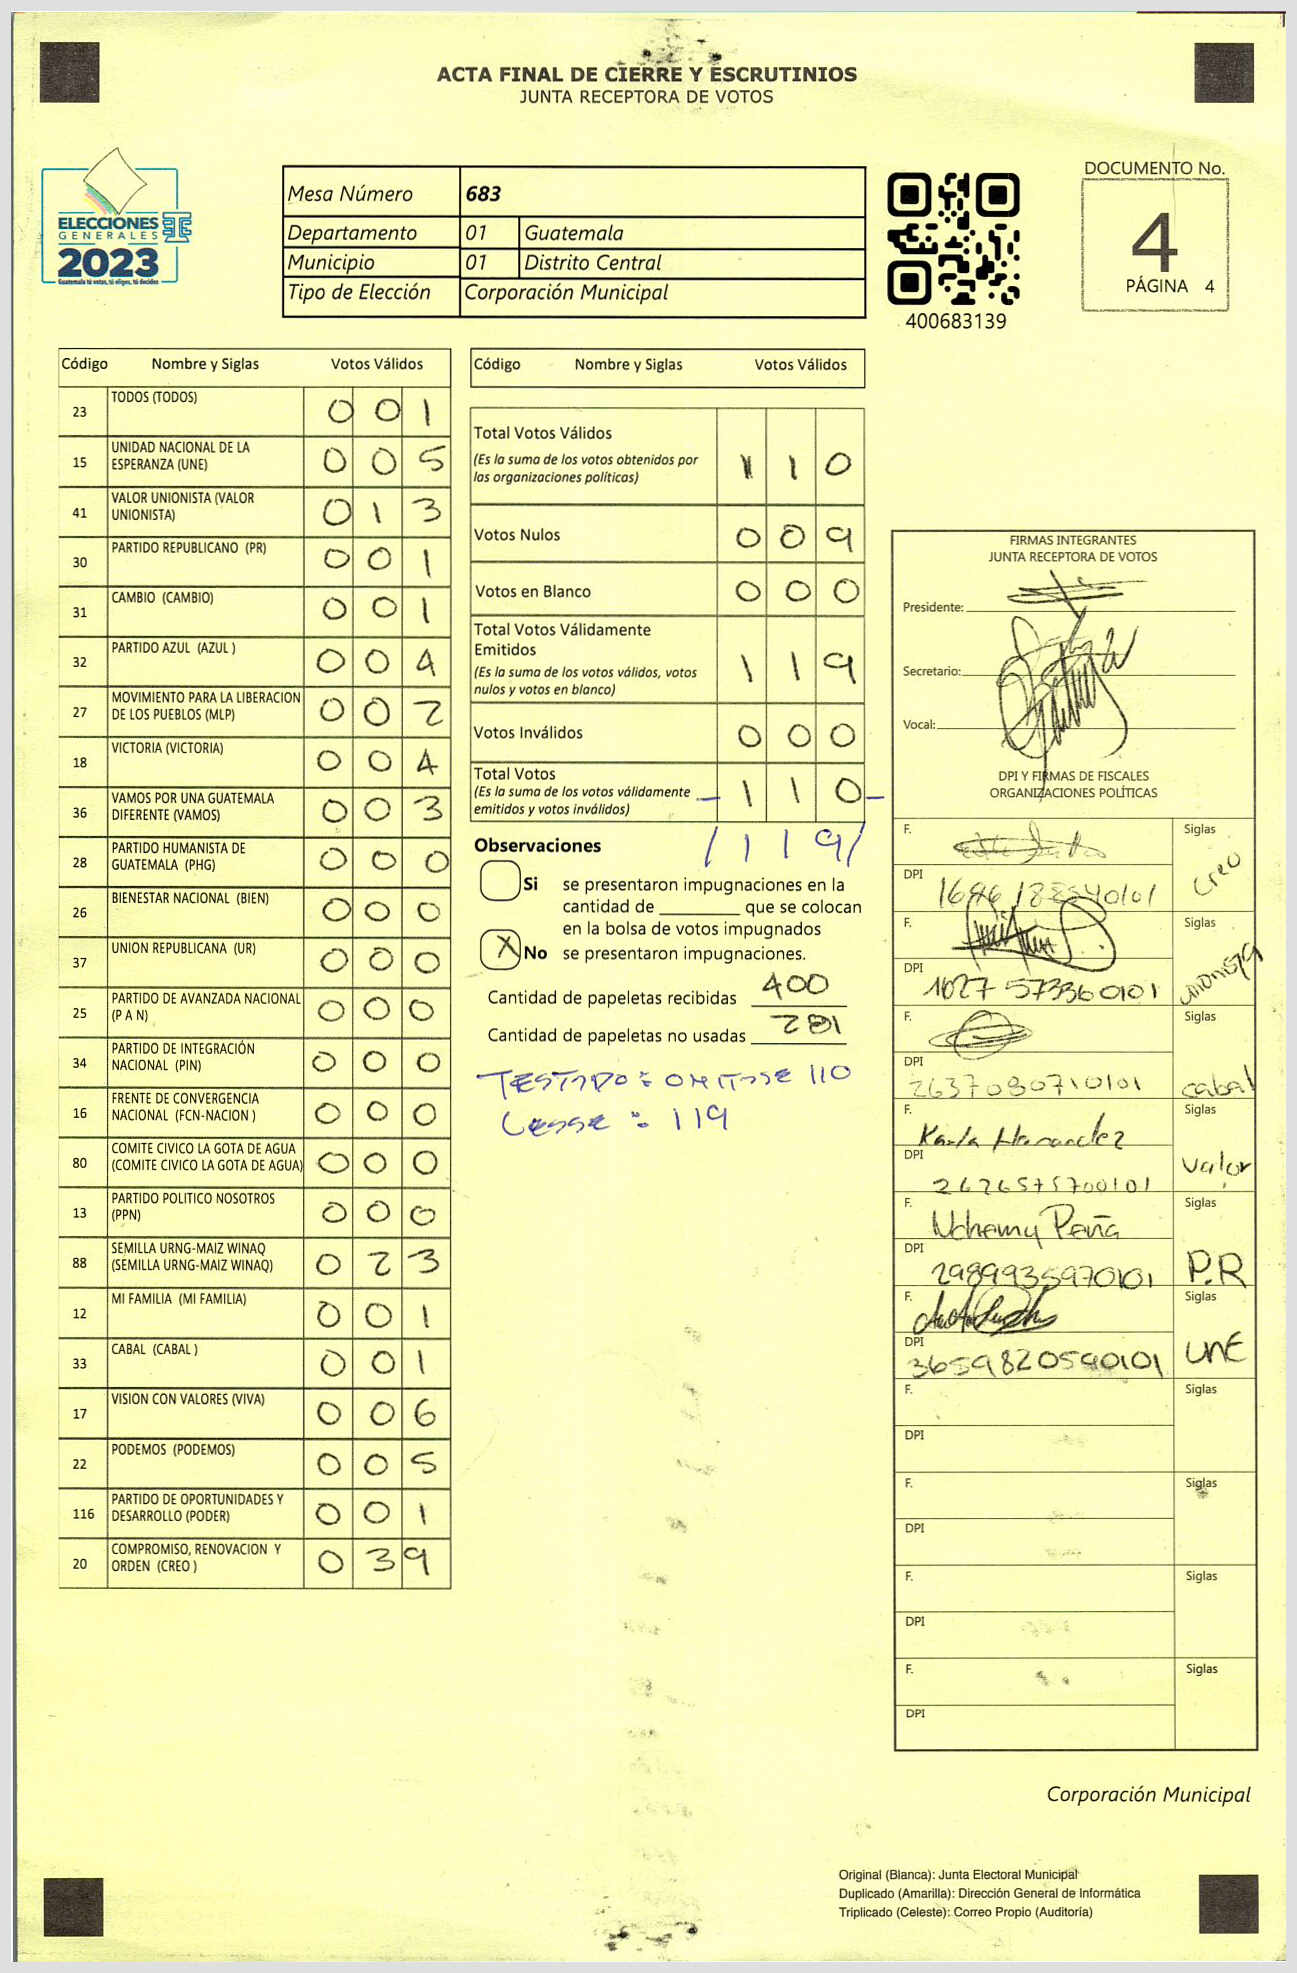 ACTA FINAL DE CIERRE Y ESCRUTINIOS
JUNTA RECEPTORA DE VOTOS
ELECCIONES
GENERALES
2023
Guatemala tú votas, tú eliges, tú decides
Mesa Número 683
Departamento 01 Guatemala
Municipio 01 Distrito Central
Tipo de Elección Corporación Municipal
400683139
DOCUMENTO No.
4
PÁGINA 4
Código Nombre y Siglas Votos Válidos
23 TODOS (TODOS) 0 0 1
15 UNIDAD NACIONAL DE LA
ESPERANZA (UNE) 0 0 5
41 VALOR UNIONISTA (VALOR
UNIONISTA) 0 1 3
30 PARTIDO REPUBLICANO (PR) 0 0 1
31 CAMBIO (CAMBIO) 0 0 1
32 PARTIDO AZUL (AZUL ) 0 0 4
27 MOVIMIENTO PARA LA LIBERACION
DE LOS PUEBLOS (MLP) 0 0 2
18 VICTORIA (VICTORIA) 0 0 4
36 VAMOS POR UNA GUATEMALA
DIFERENTE (VAMOS) 0 0 3
28 PARTIDO HUMANISTA DE
GUATEMALA (PHG) 0 0 0
26 BIENESTAR NACIONAL (BIEN) 0 0 0
37 UNION REPUBLICANA (UR) 0 0 0
25 PARTIDO DE AVANZADA NACIONAL
(P A N) 0 0 0
34 PARTIDO DE INTEGRACIÓN
NACIONAL (PIN) 0 0 0
16 FRENTE DE CONVERGENCIA
NACIONAL (FCN-NACION ) 0 0 0
80 COMITE CIVICO LA GOTA DE AGUA
(COMITE CIVICO LA GOTA DE AGUA) 0 0 0
13 PARTIDO POLITICO NOSOTROS
(PPN) 0 0 0
88 SEMILLA URNG-MAIZ WINAQ
(SEMILLA URNG-MAIZ WINAQ) 0 2 3
12 MI FAMILIA (MI FAMILIA) 0 0 1
33 CABAL (CABAL ) 0 0 1
17 VISION CON VALORES (VIVA) 0 0 6
22 PODEMOS (PODEMOS) 0 0 5
116 PARTIDO DE OPORTUNIDADES Y
DESARROLLO (PODER) 0 0 1
20 COMPROMISO, RENOVACION Y
ORDEN (CREO ) 0 3 9
Código Nombre y Siglas Votos Válidos
Total Votos Válidos
(Es la suma de los votos obtenidos por
las organizaciones políticas) 1 1 0
Votos Nulos 0 0 9
Votos en Blanco 0 0 0
Total Votos Válidamente
Emitidos
(Es la suma de los votos válidos, votos
nulos y votos en blanco) 1 1 9
Votos Inválidos 0 0 0
Total Votos
(Es la suma de los votos válidamente
emitidos y votos inválidos) - 1 1 0 -
/ 1 1 9 /
Observaciones
Si se presentaron impugnaciones en la
cantidad de ________ que se colocan
en la bolsa de votos impugnados
X No se presentaron impugnaciones.
Cantidad de papeletas recibidas 400
Cantidad de papeletas no usadas 281
TESTADO: OMITASE 110
LEASE: 119
FIRMAS INTEGRANTES
JUNTA RECEPTORA DE VOTOS
Presidente:
Secretario:
Vocal:
DPI Y FIRMAS DE FISCALES
ORGANIZACIONES POLÍTICAS
F. Siglas
DPI Creo
F. Siglas
DPI 1027 573360101 unionista
F. Siglas
DPI 2637080710101 cabal
F. Karla Hernandez Siglas
DPI 2626575700101 Valor
F. Nohemy Peña Siglas
DPI 2989935970101 P.R
F. Siglas
DPI 3659820590101 UNE
F. Siglas
DPI
F. Siglas
DPI
F. Siglas
DPI
F. Siglas
DPI
Corporación Municipal
Original (Blanca): Junta Electoral Municipal
Duplicado (Amarilla): Dirección General de Informática
Triplicado (Celeste): Correo Propio (Auditoría)